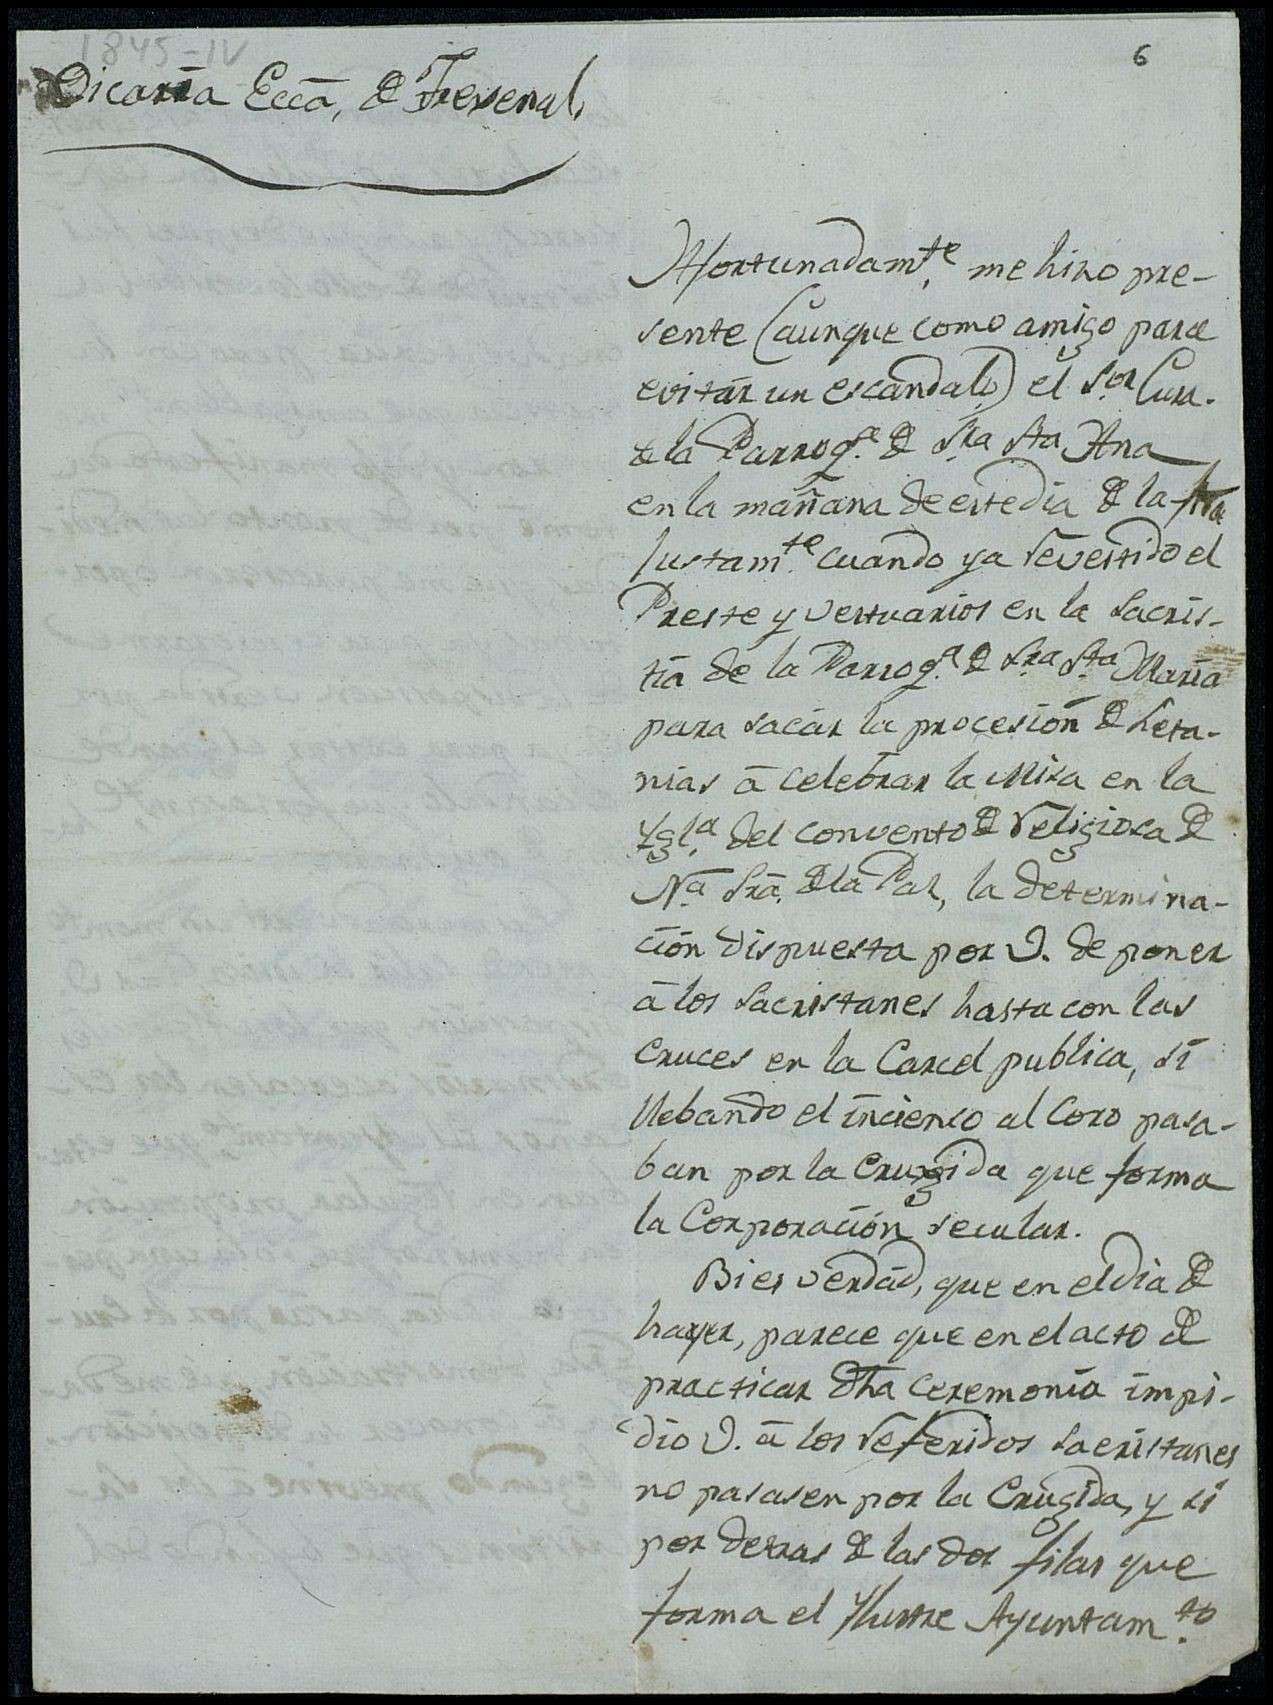 1845-IV
6
Vicaria Ecca, de Frexenal.
Afortunadamte. me hizo pre-
sente (aunque como amigo para
evitar un escandalo) el Sor Cura
de la Parroqa. de Sra Sta Ana
en la mañana de este dia de la fha
justamte. cuando ya revestido el
Preste y vestuarios en la Sacris-
tia de la Parroqa. de Sra Sta. Maria
para sacar la procesion de Leta-
nias á celebrar la Misa en la
Ygla. del convento de religiosa de
Na. Sra. de la Paz, la determina-
cion dispuesta por V. de poner
á los Sacristanes hasta con las
cruces en la Carcel publica, si
llebando el incienso al Coro pasa-
ban por la crugida que forma
la Corporacion secular.
Bi es verdad, que en el dia de
hayer, parece que en el acto de
practicar dha ceremonia impi-
dio V. á los referidos sacristanes
no pasasen por la Crugida, y si
por detras de las dos filas que
forma el Ylustre Ayuntamto.